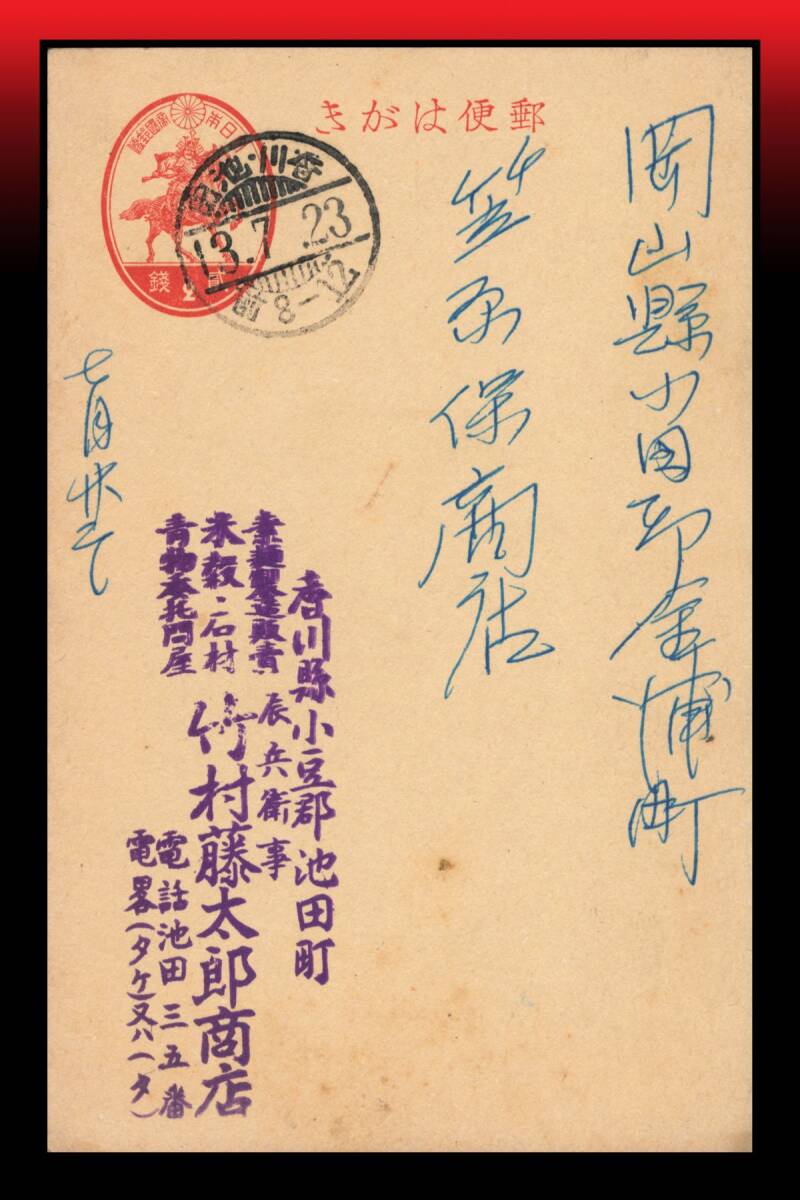 郵便はがき
日本帝國郵便
貳錢
2
香川・池田
13.7.23
后8-12
岡山縣小田郡金浦町
笠原保商店
七月廿三日
香川縣小豆郡池田町
素麺製造販賣
米穀・石材
青物委托問屋
辰兵衛事
竹村藤太郎商店
電話池田三五番
電畧(タケ)又ハ(タ)